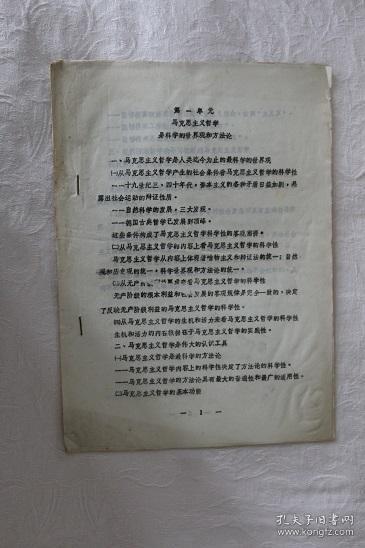 第一单元
马克思主义哲学
是科学的世界观和方法论
一、马克思主义哲学是人类迄今为止的最科学的世界观
㈠从马克思主义哲学产生的社会条件看马克思主义哲学的科学性
——十九世纪三、四十年代，资本主义的各种矛盾日益加剧，暴
露出社会运动的辩证性质。
——自然科学的发展，三大发现。
——德国古典哲学已发展到顶峰。
这些条件构成了马克思主义哲学科学性的客观前提。
㈡从马克思主义哲学的内容上看马克思主义哲学的科学性
马克思主义哲学从内容上体现着唯物主义和辩证法的统一；自然
观和历史观的统一，科学世界观和方法论的统一。
㈢从无产 看马克思主义哲学的科学性
无产阶级的根本利益和社会发展的客观规律是完全一致的，决定
了反映无产阶级利益的马克思主义哲学的科学性。
㈣从马克思主义哲学的生机和活力来看马克思主义哲学的科学性
生机和活力的内在根据在于马克思主义哲学的实践性。
二、马克思主义哲学是伟大的认识工具
㈠马克思主义哲学是最科学的方法论
——马克思主义哲学内容上的科学性决定了方法论的科学性。
——马克思主义哲学的方法论具有最大的普遍性和最广的适用性。
㈡马克思主义哲学的基本功能
— 1 —
孔夫子旧书网